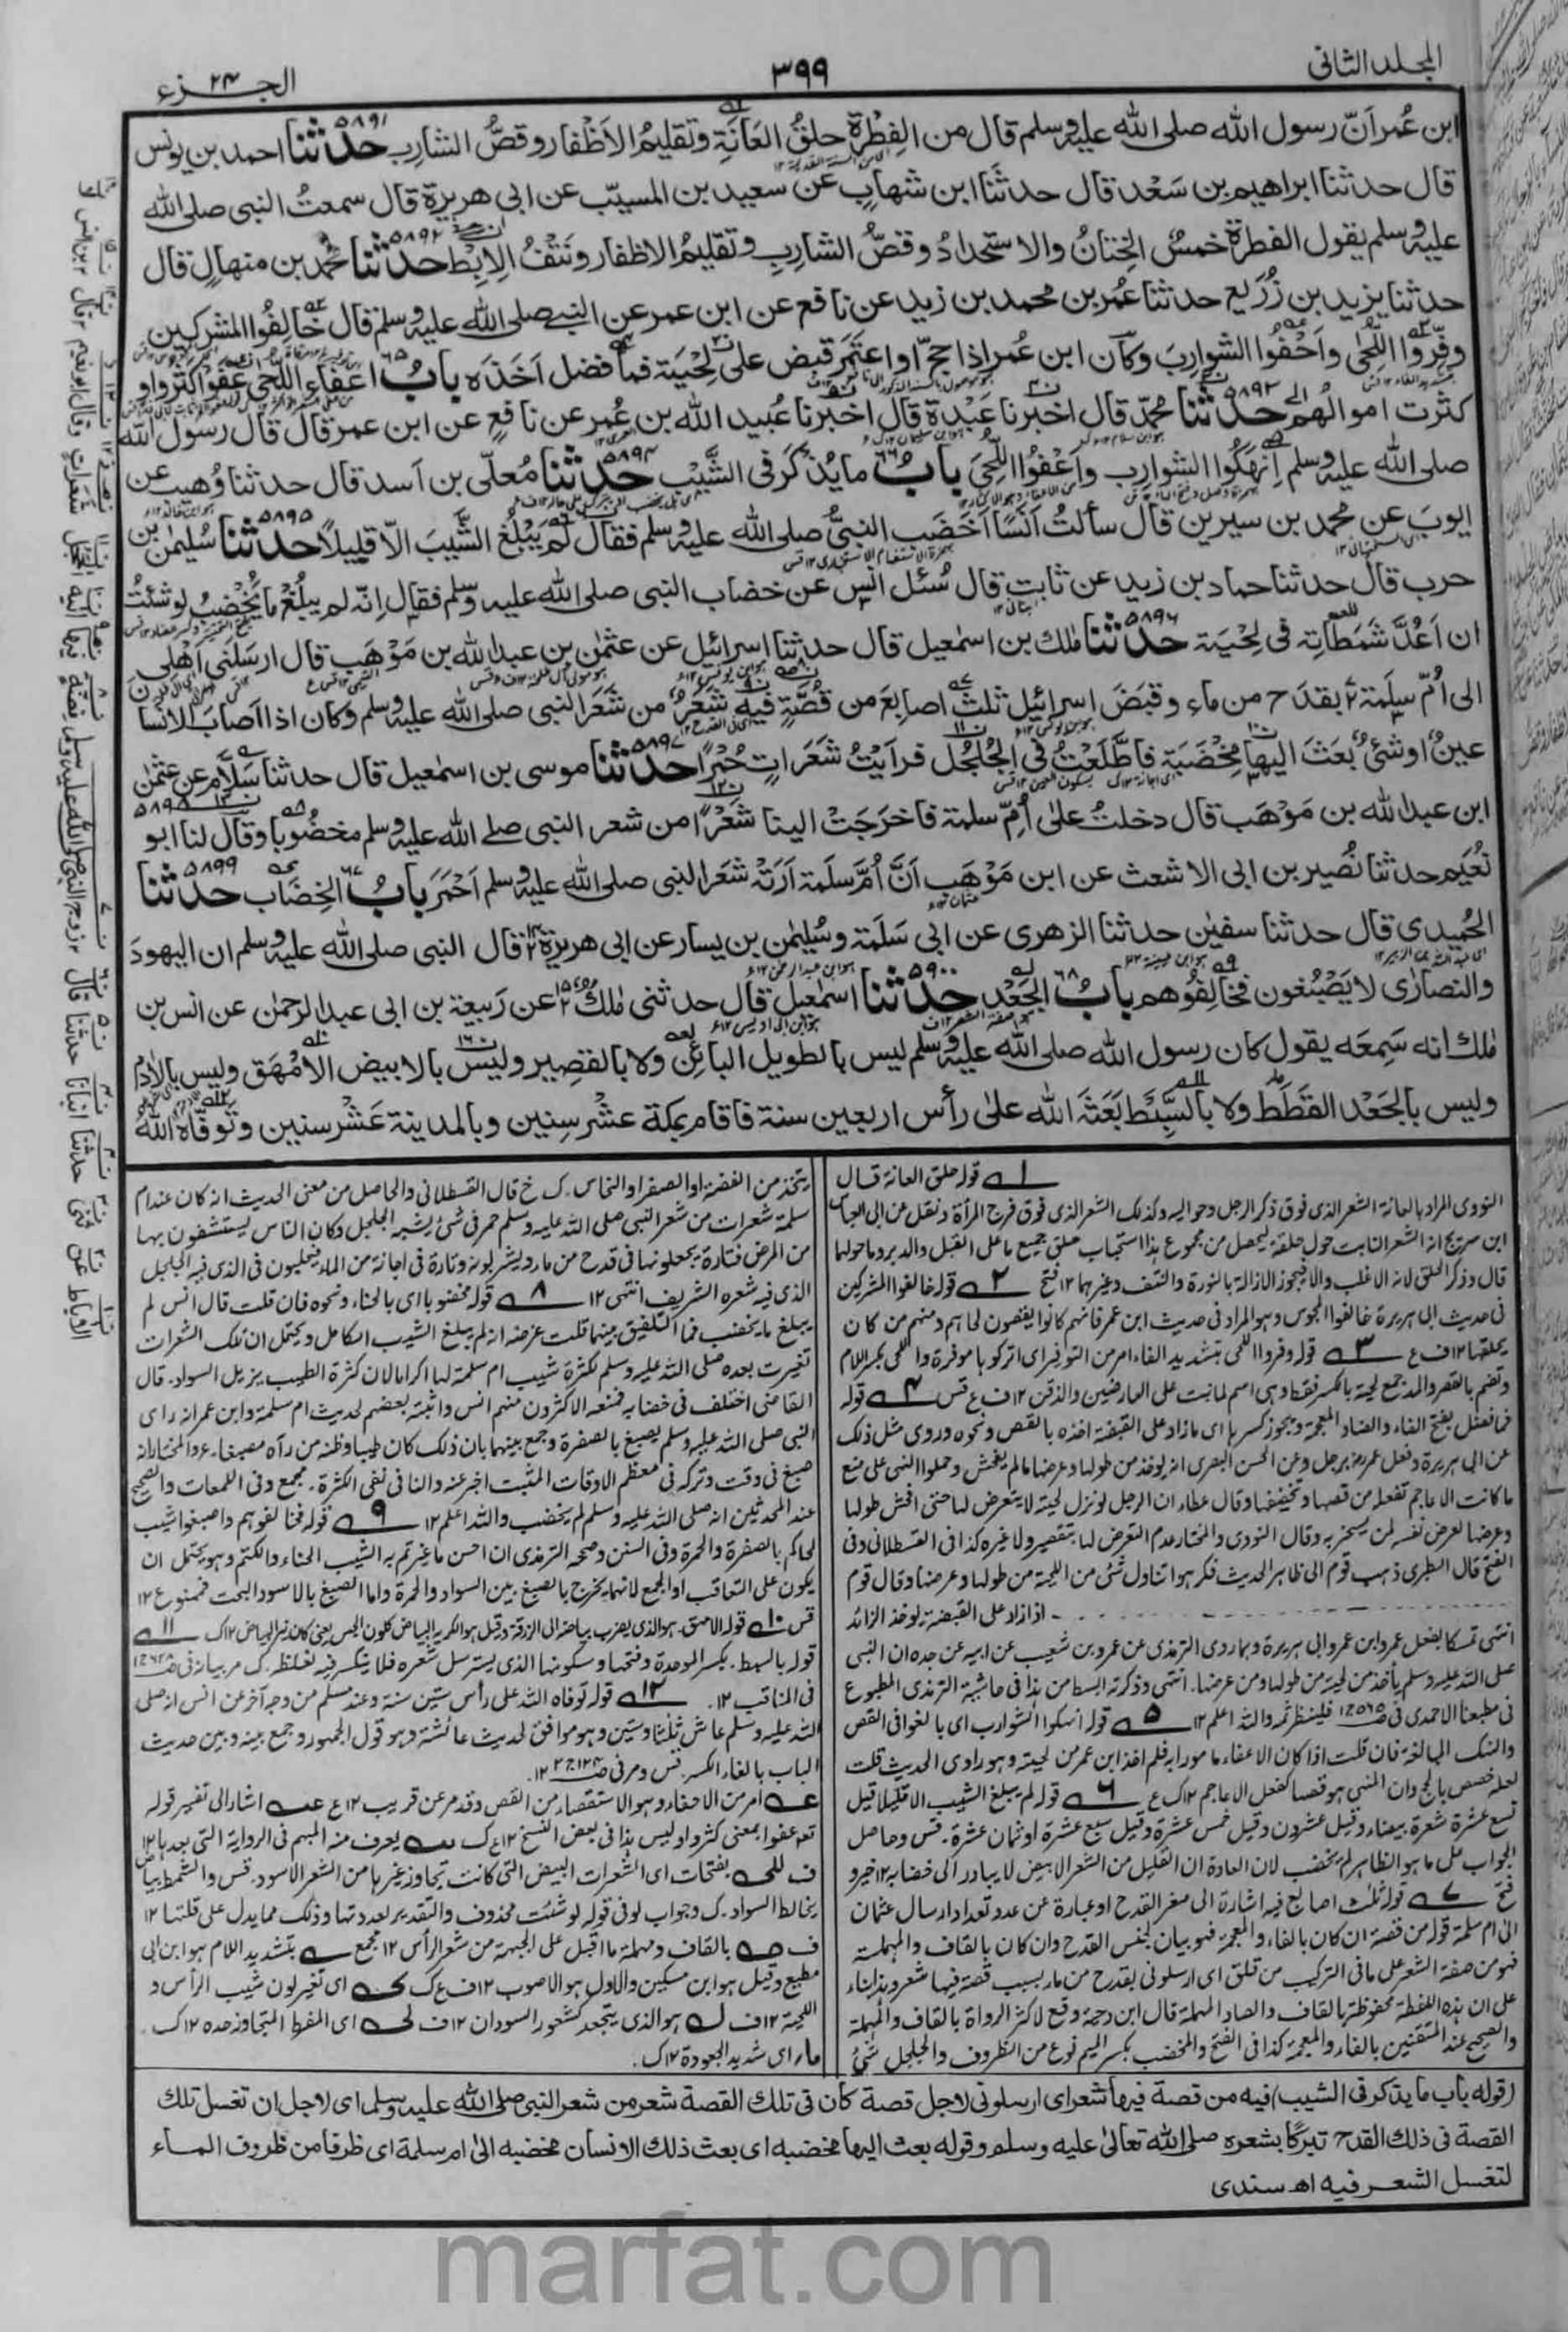 المجلد الثانی
٣٩٩
الجزء ٢٤
ابن عُمر اَنّ رسول الله صلى الله عليه وسلم قال من الفِطْرة حلقُ العَانَةِ وتقليمُ الاَظْفار وقصُّ الشارب حدثنا ٥٨٩١ احمد بن يونس
قال حدثنا ابراهيم بن سَعْد قال حدثنا ابن شهاب عن سعيد بن المسيّب عن ابى هريرة قال سمعتُ النبى صلى الله
عليه وسلم يقول الفطرة خمسٌ الخِتانُ والاستحدادُ وقصُّ الشاربِ وتقليمُ الاظفار ونَتْفُ الاِبِط حدثنا ٥٨٩٢ محمد بن منهالٍ قال
حدثنا يزيد بن زُرَيع حدثنا عُمر بن محمد بن زيد عن نافع عن ابن عمر عن النبى صلى الله عليه وسلم قال خالِفُوا المشركين
وفِّروا اللُّحٰى واَحْفُوا الشواربَ وكان ابن عُمر اذا حجّ او اعتَمَر قبض على لِحْيَته فما فضل اَخَذَه بابُ ٦٥ اعفاء اللحى عَفَوا كثروا و
كثرت اموالُهم حدثنا ٥٨٩٣ محمّد قال اخبرنا عَبْدة قال اخبرنا عُبيد الله بن عُمر عن نافع عن ابن عمر قال قال رسول الله
صلى الله عليه وسلم اِنهَكُوا الشوارب واَعْفُوا اللُّحىٰ بابُ ٦٦ ما يُذكَر فى الشَّيْب حدثنا ٥٨٩٤ مُعلّى بن اَسد قال حدثنا وُهيب عن
ايوبَ عن محمد بن سيرين قال سألتُ اَنَسًا اَخَضَب النبىُّ صلى الله عليه وسلم فقال لَم يَبْلُغ الشَّيبَ الاّ قليلاً حدثنا ٥٨٩٥ سُليمٰن بن
حرب قال حدثنا حماد بن زيد عن ثابت قال سُئل انس عن خضاب النبى صلى الله عليه وسلم فقال انّه لم يبلُغ ما يُخْضِبُ لو شئتُ
ان اَعُدَّ شَمَطاتِه فى لِحْيَتِه حدثنا ٥٨٩٦ مٰلك بن اسمٰعيل قال حدثنا اسرائيل عن عثمٰن بن عبد الله بن مَوْهَب قال ارسَلَنى اَهْلى
الى اُمّ سلَمة بقدَح من ماء وقبَضَ اسرائيل ثلٰث اصابعَ من قُصَّةٍ فيه شَعَرٌ من شَعَر النبى صلى الله عليه وسلم وكان اذا اَصابَ الانسانَ
عينٌ او شئٌ بَعَثَ اليها مِخْضَبَة فاطَّلَعْتُ فى الجُلْجُل فرأيْتُ شَعَراتٍ حُمْرًا حدثنا ٥٨٩٧ موسى بن اسمٰعيل قال حدثنا سَلّام عن عثمٰن
ابن عبد الله بن مَوْهَب قال دخلتُ علىٰ اُمّ سلمة فاخرَجَتْ الينا شَعَرًا من شعر النبى صلى الله عليه وسلم مخضُوبا ٥٨٩٨ وقال لنا ابو
نُعَيم حدثنا نُصَير بن ابى الاشعث عن ابن مَوْهَب اَنَّ اُمَّ سلَمة اَرَتْهُ شعَر النبى صلى الله عليه وسلم اَحْمَرَ بابُ ٦٧ الخِضَاب حدثنا ٥٨٩٩
الحُميدى قال حدثنا سفيٰن حدثنا الزهرى عن ابى سَلَمة وسُليمٰن بن يسار عن ابى هريرة قال النبى صلى الله عليه وسلم ان اليهودَ
والنصارٰى لا يَصْبُغون فخالِفُوهم بابُ ٦٨ الجَعْد حدثنا ٥٩٠٠ اسمٰعيل قال حدثنى مٰلك عن رَبيعة بن ابى عبد الرحمٰن عن انس بن
مٰلك انه سَمِعَه يقول كان رسول الله صلى الله عليه وسلم ليس بالطويل البائن ولا بالقصير وليس بالابيض الاَمْهَق وليس بالاٰدم
وليس بالجَعْد القَطَط ولا بالسَّبِط بَعَثَه الله علىٰ رأس اربعين سنة فاقام بمكة عشْر سِنين وبالمدينة عَشْر سنين وتَوفّاه الله
١ قوله حلق العانة قال
النووى المراد بالعانة الشعر الذى فوق ذكر الرجل وحواليه وكذلك الشعر الذى فوق فرج المرأة ونقل عن ابى العباس
ابن سريج انه الشعر النابت حول حلقة الدبر فيحصل من مجموع هذا استحباب حلق جميع ما على القبل والدبر وحولهما
قال وذكر الحلق لانه الاغلب والا فيجوز الازالة بالنورة والنتف وغيرهما ١٢ فتح ٢ قوله خالفوا المشركين
فى حديث ابى هريرة خالفوا المجوس وهو المراد فى حديث ابن عمر فانهم كانوا يقصون لحاهم ومنهم من كان
يحلقها ١٢ ف ع ٣ قوله وفروا اللحى بتشديد الفاء امر من التوفير اى اتركوها موفرة واللحى بكسر اللام
وتضم بالقصر والمد جمع لحية بالكسر فقط وهى اسم لما نبت على العارضين والذقن ١٢ ف ع قس ٤ قوله
فما فضل بفتح الفاء والضاد المعجمة ويجوز كسرها اى ما زاد على القبضة اخذه بالقص ونحوه وروى مثل ذلك
عن ابى هريرة وفعل عمر رضـ برجل وعن الحسن البصرى انه يؤخذ من طولها وعرضها ما لم يفحش وحملوا النهى على منع
ما كانت الاعاجم تفعله من قصها وتخفيفها وقال عطاء ان الرجل لو ترك لحيته لا يتعرض لها حتى افحش طولها
وعرضها لعرض نفسه لمن يسخر به وقال النووى والمختار عدم التعرض لها بتقصير ولا غيره كذا فى القسطلانى وفى
الفتح قال الطبرى ذهب قوم الى ظاهر الحديث فكرهوا تناول شئ من اللحية من طولها وعرضها وقال قوم
اذا زاد على القبضة يؤخذ الزائد
انتهى تمسكا بفعل عمر وابن عمر وابى هريرة وبما روى الترمذى عن عمرو بن شعيب عن ابيه عن جده ان النبى
صلى الله عليه وسلم يأخذ من لحيته من طولها ومن عرضها. انتهى وذكرته ابسط من هذا فى حاشية الترمذى المطبوع
فى مطبعنا الاحمدى فلينظر ثمه والله اعلم ١٢ ٥ قوله انهكوا الشوارب اى بالغوا فى القص
والنهك المبالغة فان قلت اذا كان الاعفاء مامورا به فلم اخذ ابن عمر من لحيته وهو راوى الحديث قلت
لعله خصص بالحج وان المنهى هو قصها كفعل الاعاجم ١٢ ك ع ٦ قوله لم يبلغ الشيب الا قليلا قيل
تسع عشرة شعرة بيضاء وقيل عشرون وقيل خمس عشرة وقيل سبع عشرة او ثمان عشرة. قس وحاصل
الجواب على ما هو الظاهر لم يخضب لان العادة ان القليل من الشعر الابيض لا يبادر الى خضابه ١٢ خير و
فتح ٧ قوله ثلٰث اصابع فيه اشارة الى صغر القدح او عبارة عن عدد تعداد ارسال عثمان
الى ام سلمة قوله من فضة ان كان بالفاء والمعجمة فهو بيان لجنس القدح وان كان بالقاف والمهملة
فهو من صفة الشعر على ما فى التركيب من قلق اى ارسلونى بقدح من ماء بسبب قصة فيها شعر وهذا بناء
على ان هذه اللفظة محفوظة بالقاف والصاد المهملة قال ابن دحية وقع لاكثر الرواة بالقاف والمهملة
والصحيح عند المتقنين بالفاء والمعجمة كذا فى الفتح والمخضب بكسر الميم نوع من الظروف والجلجل شئ
يتخذ من الفضة او الصفر او النحاس. ك خ قال القسطلانى والحاصل من معنى الحديث انه كان عند ام
سلمة شعرات من شعر النبى صلى الله عليه وسلم حمر فى شئ يشبه الجلجل وكان الناس يستشفون بها
من المرض فتارة يجعلونها فى قدح من ماء ويشربونه وتارة فى اجانة من الماء فيجلسون فى الذى فيه الجلجل
الذى فيه شعره الشريف انتهى ١٢ ٨ قوله مخضوبا اى بالحناء ونحوه فان قلت قال انس لم
يبلغ ما يخضب فما التلفيق بينهما قلت غرضه انه لم يبلغ الشيب الكامل ويحتمل ان تلك الشعرات
تغيرت بعده صلى الله عليه وسلم لكثرة تطييب ام سلمة لها اكراما لان كثرة الطيب يزيل السواد. قال
القاضى اختلف فى خضابه فمنعه الاكثرون منهم انس واثبته بعضهم لحديث ام سلمة وابن عمر انه راى
النبى صلى الله عليه وسلم يصبغ بالصفرة وجمع بينهما بان ذلك كان طيبا وظنه من رآه صبغا. والمختار انه
صبغ فى وقت وتركه فى معظم الاوقات المثبت اخبر عنه والنافى نفى الكثرة. مجمع وفى اللمعات والصحيح
عند المحدثين انه صلى الله عليه وسلم لم يخضب والله اعلم ١٢ ٩ قوله فخالفوهم واصبغوا شيب
لحاكم بالصفرة والحمرة وفى السنن وصححه الترمذى ان احسن ما غيرتم به الشيب الحناء والكتم وهو يحتمل ان
يكون على التعاقب او الجمع لانهما يخرج بالصبغ بين السواد والحمرة واما الصبغ بالاسود البحت فممنوع ١٢
قس ١٠ قوله الامهق هو الذى يضرب بياضه الى الزرقة وقيل هو الكريه البياض كلون الجص يعنى كان نير البياض ١٢ ك ١١
قوله بالسبط. بكسر الموحدة وفتحها وسكونها الذى يسترسل شعره فلا يتكسر فيه لغلظه. ك مر بيانه
فى المناقب ١٢. ١٢ قوله توفاه الله على رأس ستين سنة وعند مسلم من وجه آخر عن انس انه صلى
الله عليه وسلم عاش ثلٰثا وستين وهو موافق لحديث عائشة وهو قول الجمهور وجمع بينه وبين حديث
الباب بالغاء الكسر. قس ومر فى
امر من الاحفاء وهو الاستقصاء من القص وقد مر عن قريب ١٢ ع اشار الى تفسير قوله
تعـ عفوا بمعنى كثروا وليس هذا فى بعض النسخ ١٢ ع ك يعرف منه المبهم فى الرواية التى بعدها ١٢
ف بفتحات اى الشعرات البيض التى كانت تجاوز غيرها من الشعر الاسود. قس والشمط بياض
يخالط السواد. ك وجواب لو فى قوله لو شئت محذوف والتقدير لعددتها وذلك مما يدل على قلتها ١٢
ف بالقاف ومهملة ما اقبل على الجبهة من شعر الرأس ١٢ مجمع بتشديد اللام هو ابن ابى
مطيع وقيل هو ابن مسكين والاول هو الاصوب ١٢ ف ع ك اى تغير لون شيب الرأس و
اللحية ١٢ ف هو الذى يتجعد كشعور السودان ١٢ ف اى المفرط المتجاوز حده ١٢ ك.
ماء اى شديد الجعودة ١٢ ك.
(قوله باب ما يذكر فى الشيب) فيه من قصة فيها شعر اى ارسلونى لاجل قصة كان فى تلك القصة شعر من شعر النبى صلى الله عليه وسلم اى لاجل ان تغسل تلك
القصة فى ذلك القدح تبركًا بشعره صلى الله تعالىٰ عليه وسلم وقوله بعث اليها مخضبه اى بعث ذلك الانسان مخضبه الىٰ ام سلمة اى ظرفا من ظروف الماء
لتغسل الشعر فيه اھ سندى
marfat.com